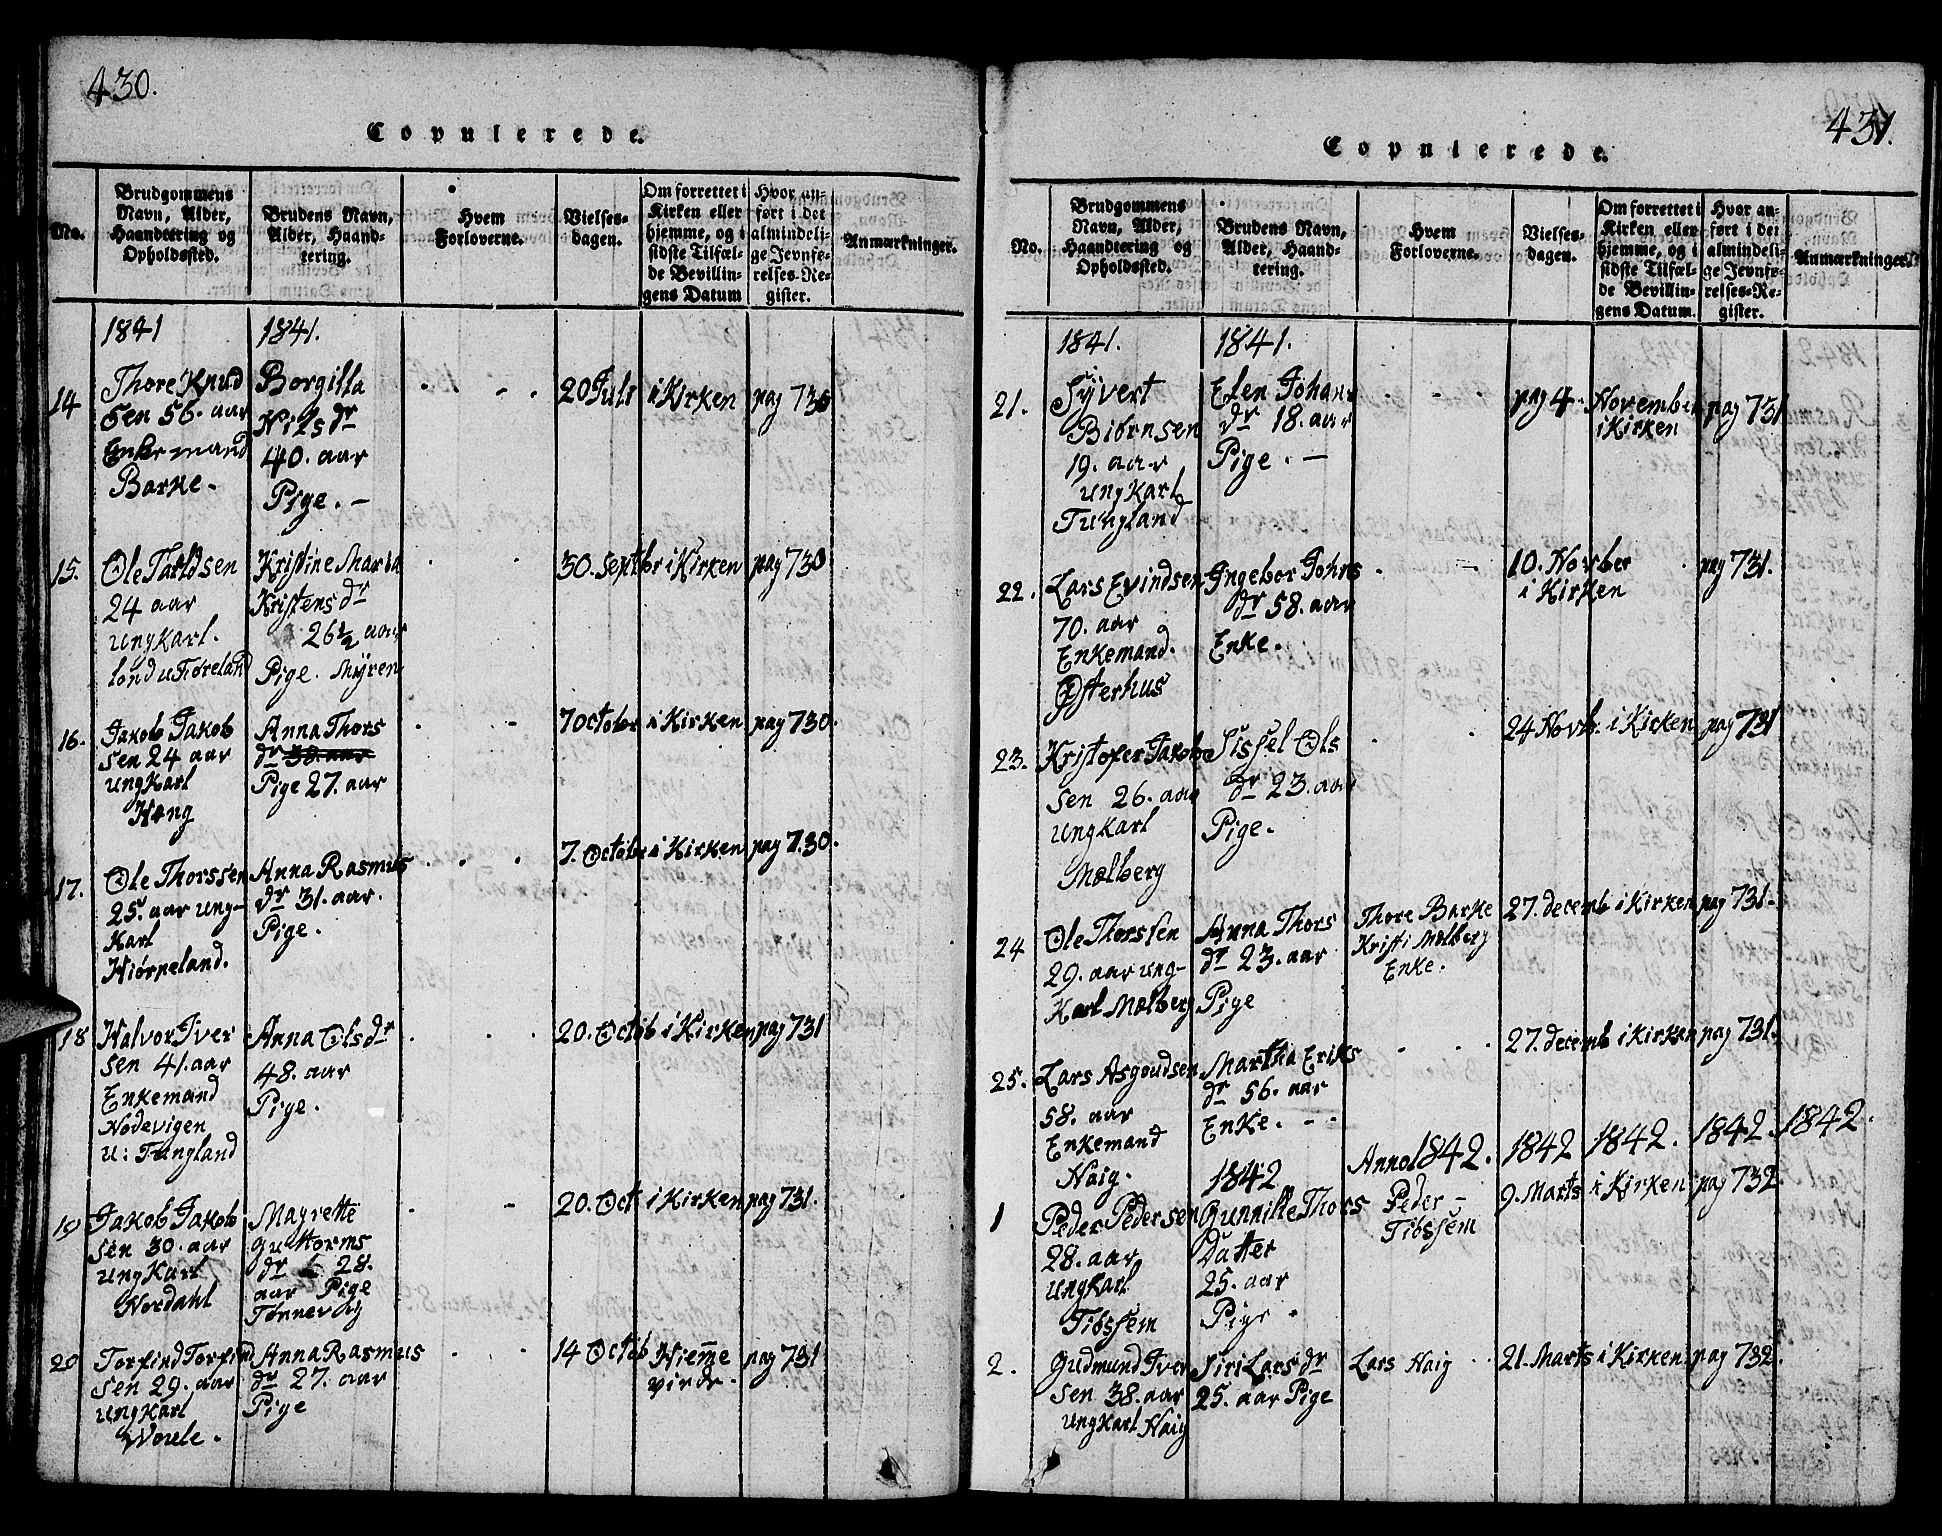 430.
Copulerede.
No.
Brudgommens
Navn, Alder,
Haandtering og
Opholdssted.
Brudens Navn,
Alder, Haand-
tering.
Hvem
Forloverne.
Vielses-
dagen.
Om forrettet i
Kirken eller
hjemme, og i
sidste Tilfæl-
de Bevillin-
gens Datum
Hvor an-
ført i det
almindeli-
ge Jevnfø-
relses-Re-
gister.
Anmærkninger.
1841 1841.
14
Thore Knud
Sen 56. aar
Enkemand
Barke.
Borgilla
Nils dr
40. aar
Pige. –
20 Juli i Kirken pag 730
15.
Ole Tarldsen
24 aar
ungkarl.
Kristine Maria
Kristens dr
26½ aar
Pige. Myren
30. Septbr i Kirken pag 730
16.
Jakob Jakob
Sen 24 aar
ungkarl
Høng
Anna Thors
dr 38. aar
Pige 27. aar
7 Octobr i Kirken pag 730.
17.
Ole Thorssen
25. aar ung-
Karl
Hiørpeland.
Anna Rasmus
dr 31. aar.
Pige.
7. Octobr i Kirken pag 730.
18
Halvor Iver
Sen 41. aar
Enkemand
Nodevigen
u: Tungland
Anna Ols dr
48. aar
Pige.
20. Octob i Kirken pag 731
19
Jakob Jakob
Sen 30. aar
ungkarl
Nordahl
Mayrette
Guttorms
dr 28.
aar Pige
Tønnevig
20. Oct i Kirken pag 731.
20
Torfind Torfind
Sen 29. aar
ungkarl
Woule.
Anna Rasmus
dr 27. aar
Pige
14 Octob Hieme
virdr. pag 731
431.
Copulerede.
No.
Brudgommens
Navn, Alder,
Haandtering og
Opholdssted.
Brudens Navn,
Alder, Haand-
tering.
Hvem
Forloverne.
Vielses-
dagen.
Om forrettet i
Kirken eller
hjemme, og i
sidste Tilfæl-
de Bevillin-
gens Datum.
Hvor an-
ført i det
almindeli-
ge Jevnfø-
relses-Re-
gister.
Anmærkninger.
1841. 1841.
21.
Syvert
Biørnsen
19. aar
ungkarl
Tungland
Elen Johans
dr 18. aar
Pige. –
pag 4. November
i Kirken
pag 731
22.
Lars Evindsen
70. aar
Enkemand.
Østerhus
Ingebor Johns
dr 58. aar
Enke.
10. Novber
i Kirken
pag 731.
23.
Kristofer Jakob
Sen 26. aar
ungkarl
Mælberg
Sissel Ols
dr 23. aar
Pige.
24 Novb. i Kirken pag 731
24
Ole Thorssen
29. aar ung-
Karl Mælberg
Anna Thors
dr 23. aar
Pige
Thore Barke
Kristi Mælberg
Enke.
27. decemb i Kirken pag 731.
25.
Lars Asgoudsen
58. aar
Enkemand
Haig.
Martha Eriks
dr 56. aar
Enke. –
27. decemb i Kirken pag 731.
1842 Anno 1842. 1842 1842. 1842 1842.
1
Peder Pedersen
28. aar
ungkarl
Tiössem
Gunnille Thors
Datter
25. aar
Pige.
Peder –
Tiössem
9. Marts i Kirken pag 732
2.
Gudmund Iver
Sen 38. aar
ungkarl Haig
Siri Lars dr
25. aar Pige
Lars Haig
21. Marts i Kirken pag 732.